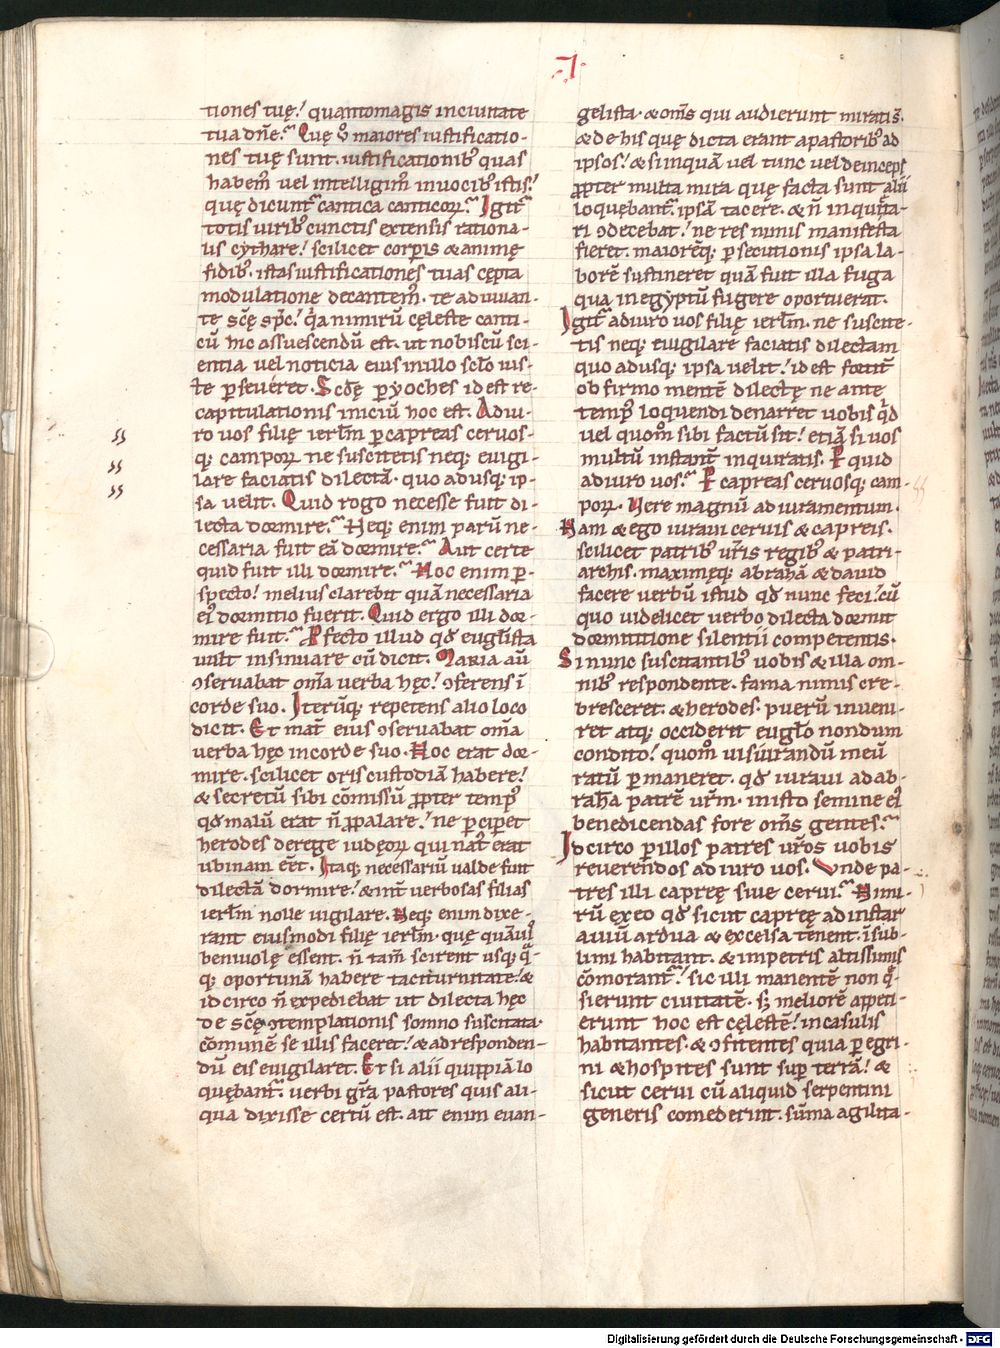 ·I·
tiones tuę! quantomagis inciuitate
tua dñe. Quę v̊ maiores iustificatio-
nes tuę sunt. iustificationib; quas
habem̃ uel intelligim̃ inuocib; istis!
quę dicunt̃ cantica canticoꝝ. Igit̃
totis uirib; cunctis extensis rationa-
lis cythare! scilicet corꝑis & animę
fidib;. istas iustificationes tuas cępta
modulatione decantem̃. te adiuuan-
te sc̃ę sp̃c! q̾a nimirũ cęleste canti-
cũ hic assuescendũ est. ut nobiscũ sci-
entia uel noticia eius inillo scło ius-
te ꝑseueret. Scđę ꝑyoches id est re-
capitulationis iniciũ hoc est. Adiu-
ro uos filię ierłm ꝑcapreas ceruos-
q; campoꝝ ne suscitetis neq; euigi-
lare faciatis dilectã. quo adusq; ip-
sa uelit. Quid rogo necesse fuit di-
lecta dormire. Neq; enim parũ ne-
cessaria fuit eã dormire. Aut certe
quid fuit illi dormire. Hoc enim ꝑ-
specto! melius clarebit quã necessaria
ei᷒ dormitio fuerit. Quid ergo illi dor-
mire fuit. Ꝓfecto illud qđ eugłista
uult insinuare cũ dicit. Maria aũ
ꝯseruabat om̃a uerba hęc! ꝯferens ĩ
corde suo. Iterũq; repetens alio loco
dicit. Et mat̃ eius ꝯseruabat om̃a
uerba hęc incorde suo. Hoc erat dor-
mire. scilicet oris custodiã habere!
& secretũ sibi cõmissũ ꝓpter temp᷒
qđ malũ erat ñ ꝓpalare! ne ꝑciperet
herodes derege iudęoꝝ qui nat᷒ erat
ubinam eẽt. Itaq; necessariũ ualde fuit
dilectã dormire! & int̃ uerbosas filias
ierłm nolle uigilare. Neq; enim dixe-
rant eiusmodi filię ierłm. quę quãuis
beniuolę essent. ñ tam̃ scirent usq;
q; oportunã habere taciturnitatẽ! &
idcirco ñ expediebat ut dilecta hęc
de sc̃ę ꝯtemplationis somno suscitata.
cõmunẽ se illis faceret! & ad responden-
dũ eis euigilaret. Et si alii quippiã lo
quębant̃. uerbi gr̃a pastores quis ali-
qua dixisse certũ est. ait enim euan-
gelista. & om̃s qui audierunt mirati s̃.
& de his quę dicta erant apastorib; ad
ipsos! & si inquã uel tunc uel deinceps
ꝓpter multa mira quę facta sunt alii
loquębant̃. ipsã tacere. & ñ inquieta-
ri ꝯdecebat! ne res nimis manifesta
fieret. maiorẽq; ꝑsecutionis ipsa la-
borẽ sustineret quã fuit illa fuga
qua inegyptũ fugere oportuerat.
Igit̃ adiuro uos filię ierłm. ne suscite-
tis neq; euigilare faciatis dilectam
quo adusq; ipsa uelit! id est
ob firmo mentẽ dilectę ne ante
temp᷒ loquendi denarret uobis q̾d
uel quom̊ sibi factũ sit! etiã si uos
multũ instant̃ inquiratis. P quid
adiuro uos. P capreas ceruosq; cam-
poꝝ. Vere magnũ adiuramentum.
Nam & ego iuraui ceruis & capreis.
scilicet patrib; ur̃is regib; & patri-
archis. maximęq; abrahã & dauid
facere uerbũ istud qđ nunc feci! cũ
quo uidelicet uerbo dilecta dormit
dormitione silentii competentis.
Si nunc suscitantib; uobis & illa om-
nib; respondente. fama nimis cre-
bresceret. & herodes. puerũ inueni-
ret atq; occiderit eugło nondum
condito! quom̊ uisiurandũ meũ
ratũ ꝑmaneret. qđ iuraui ad ab-
rahã patrẽ ur̃m. inisto semine ei᷒
benedicendas fore om̃s gentes.
Idcirco ꝑ illos patres ur̃os uobis
reuerendos adiuro uos. Vnde pa-
tres illi capreę siue cerui. Nimi-
rũ ex eo qđ sicut capreę ad instar
auiũ ardua & excelsa tenent. ĩ sub-
limi habitant. & impetris altissimis
cõmorant̃! sic illi manentẽ non q̾-
sierunt ciuitatẽ. sꝫ meliorẽ appeti-
erunt hoc est cęlestẽ! incasulis
habitantes. & ꝯfitentes quia ꝑegri-
ni & hospites sunt suꝑ terrã! &
sicut cerui cũ aliquid serpentini
generis comederint. sũma agilita-
Digitalisierung gefördert durch die Deutsche Forschungsgemeinschaft - DFG